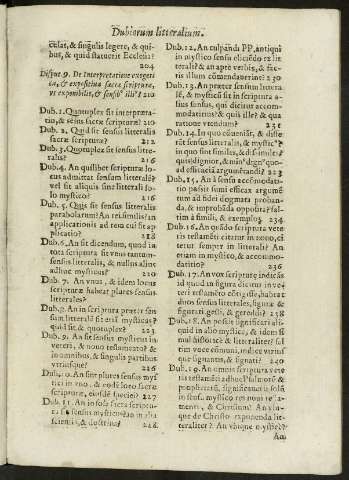 Dubiorum litteralium.
culas, & singulis legere, & qui-
bus, & quid statuerit Ecclesia?
204
Disput. 9. De Interpretatione exegeti
ca, & expositiva sacræ scripturæ,
210
Dub. 1. Quotuplex sit interpreta-
tio, & sensus sacræ scripturæ? 210
Dub. 2. Quid sit sensus litteralis
sacræ scripturæ? 212
Dub. 3. Quotuplex sit sensus litte-
ralis? 216
Dub. 4. An quilibet scripturæ lo-
cus admittat sensum litteralē?
vel sit aliquis sine litterali so-
lo mystico? 216
Dub. 5. Quis sit sensus litteralis
parabolarum? An rei similis? an
applicationis ad rem cui sit ap
plicatio? 218
Dub. 6. An sit dicendum, quod in
tota scriptura sit unus tantum
sensus litteralis, & nullus aliter
adhuc mysticus? 220
Dub. 7. An unus, & idem locus
scripturæ habeat plures sensus
litterales?
Dub. 8. An in scriptura præter sen
sum litteralē sit etiā mysticus?
quid sit, & quotuplex? 223
Dub. 9. An sit sensus mysticus in
veteri, & novo testamento? &
in omnibus, & singulis partibus
utriusque? 226
Dub. 10. An sint plures sensus mys
tici in uno, & eodē loco sacræ
scripturæ, eiusdē speciei? 227
Dub. 11. An in sola sacra scriptu-
ra sit sensus mysticus? an in alia
scientia, & doctrina? 228
Dub. 12. An culpādi PP. antiqui
in mystico sensu eliciēdo ex lit
terali? & an aptè verbis, & fac-
tis illum cōmendaverint? 230
Dub. 13. An præter sensum littera
lē, & mysticū sit in scriptura a-
lius sensus, qui dicitur accom-
modatitius? & quis ille? & qua
ratione utendum? 231
Dub. 14. In quo cōueniāt, & diffe
rāt sensus litteralis, & mystic9?
in quo sint similes, & dissimiles?
quis dignior, & min9 dign9 quo-
ad efficatiā argumētādi? 233
Dub. 15. An à sensu accommodati-
tio possit sumi efficax argumē
tum ad fidei dogmata proban-
da, & improbāda opposita? sal-
tim à simili, & exemplo? 234
Dub. 16. An quādo scriptura vete
ris testamēti citatur in novo, ci
tetur semper in litterali? An
etiam in mystico, & accommo-
datitio? 236
Dub. 17. An vox scripturę indicās
id quod in figura dicitur in ve-
teri testamēto cōtigisse, habeat
duos sensus litterales, figuræ &
figurati, gesti, & gerēdi? 238
Dub. 18. An possit significari ali-
quid in alio mysticè, & idem si
mul historicè & litteraliter? sal
tim voce cōmuni, indice utrius
que signantis, & signati? 240
Dub. 19. An omnis scriptura vete
ris testamēti adhuc Psalmorū &
prophetarū, significet novi testa-
menti, & Christum? An ubi-
que de Christo exponenda lit-
teraliter? An ubique mysticè?